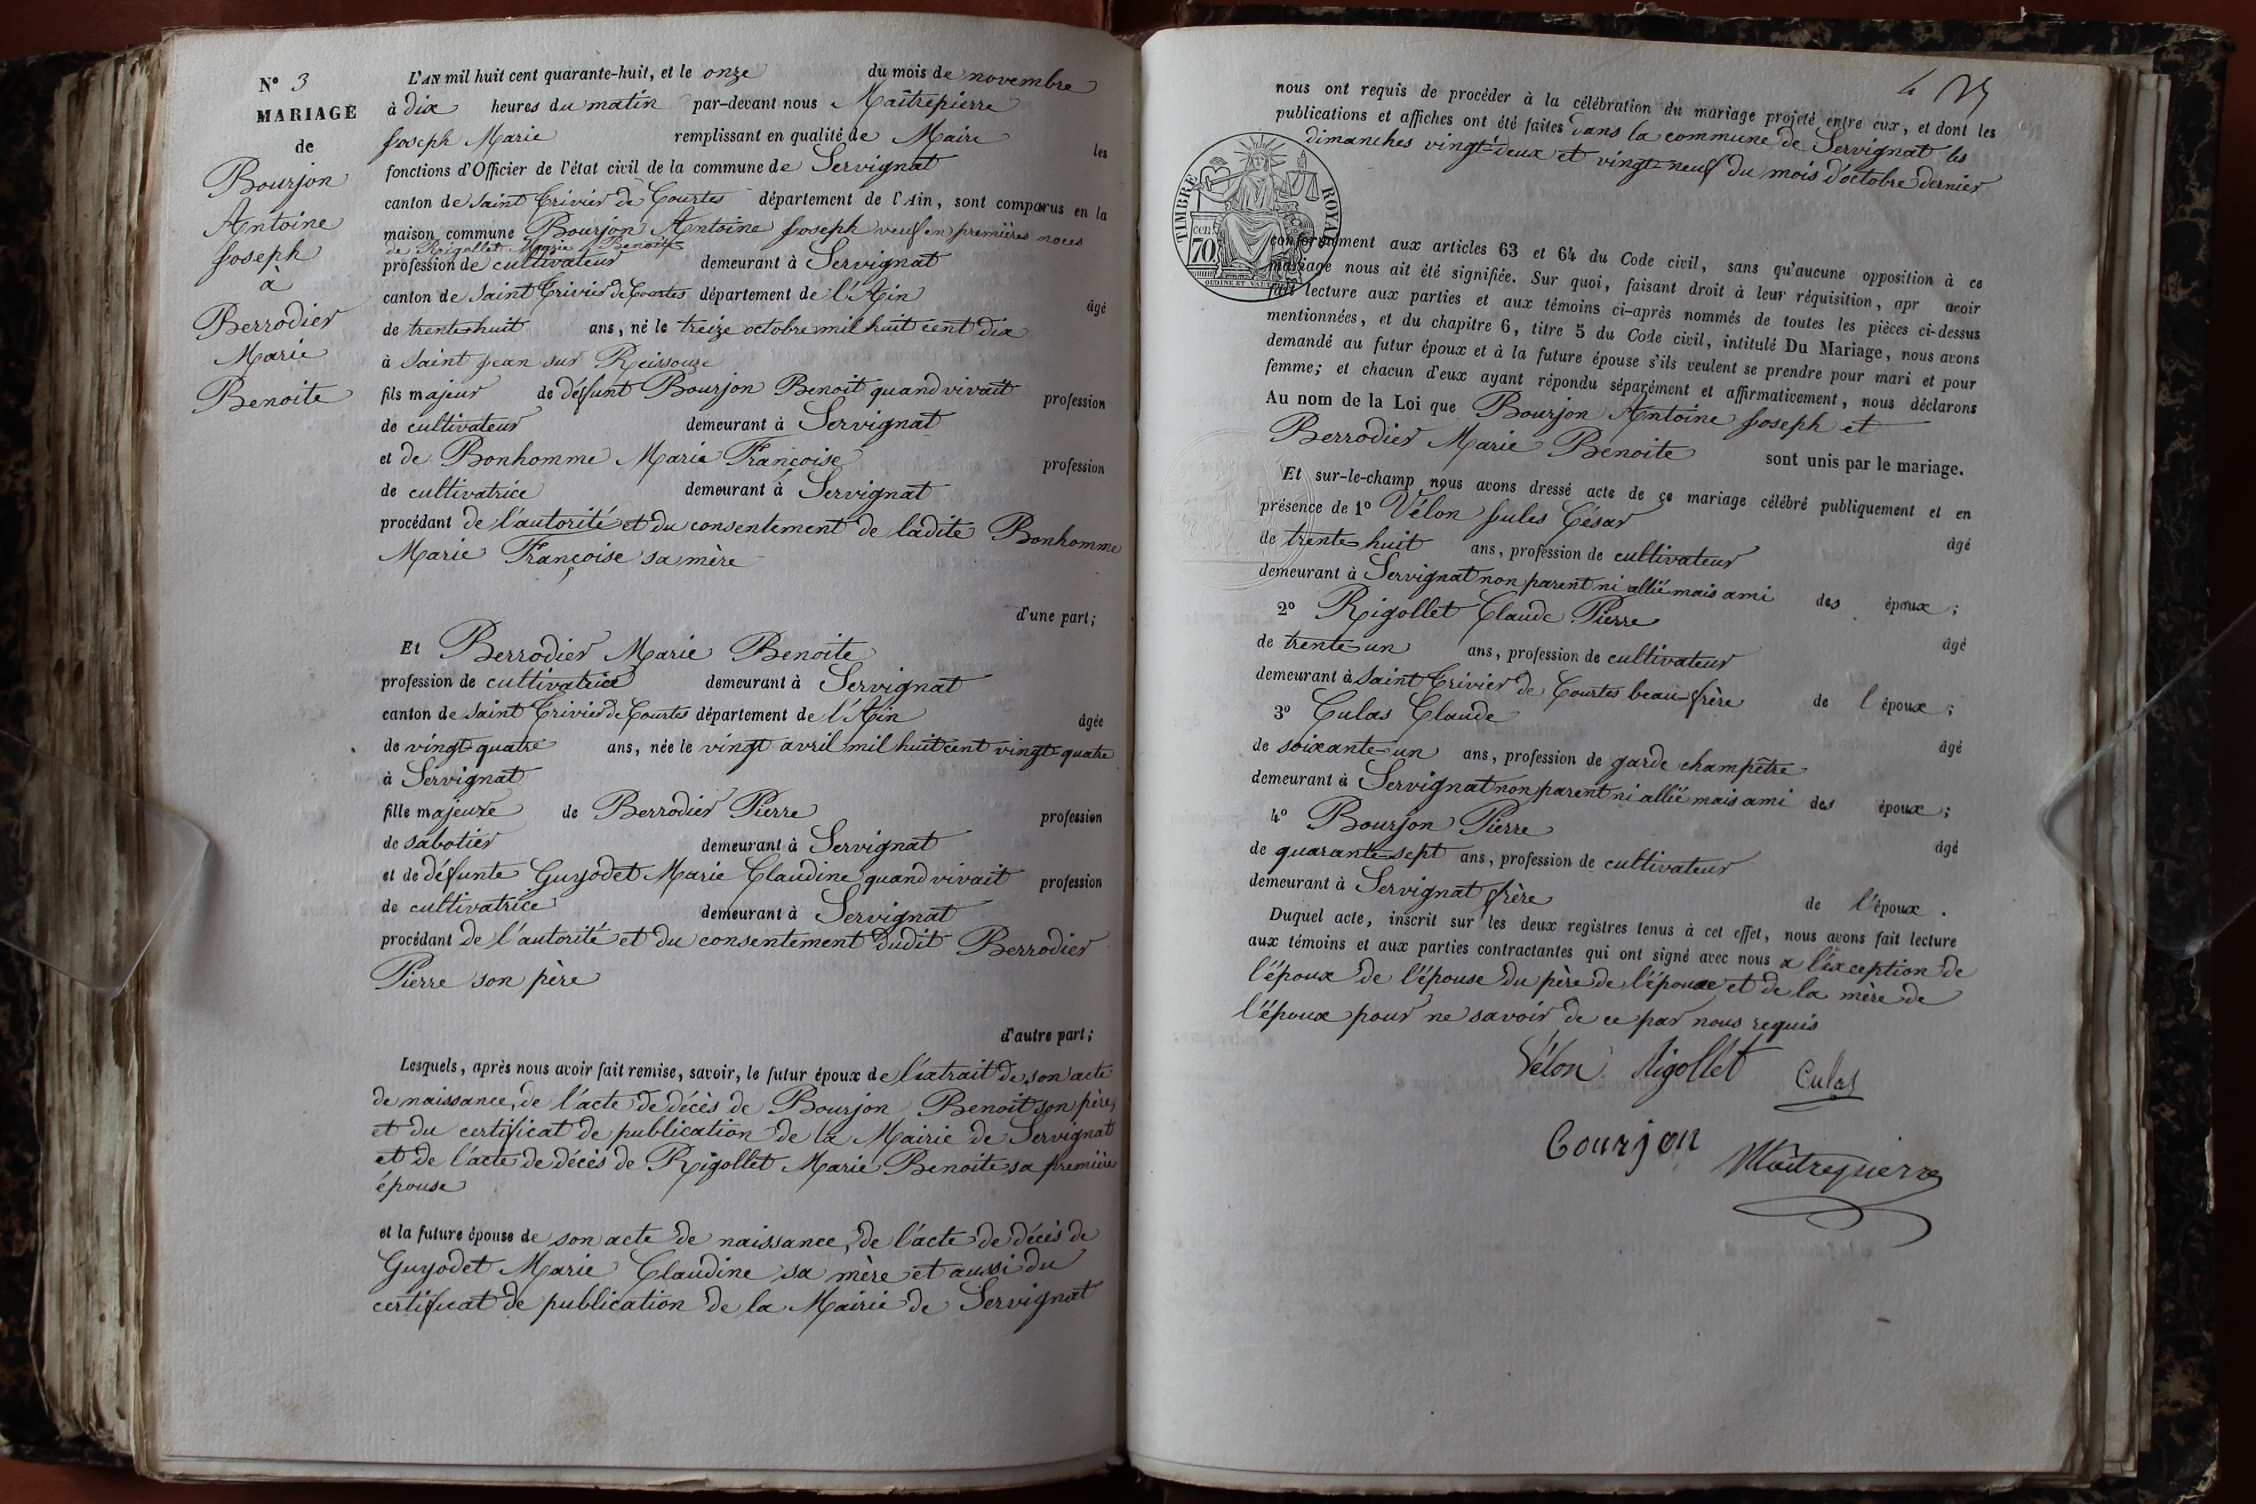 N° 3
MARIAGE
de
Bourjon
Antoine
Joseph
à
Berrodier
Marie
Benoite
L'AN mil huit cent quarante-huit, et le onze du mois de novembre
à dix heures du matin par-devant nous Maîtrepierre
Joseph Marie remplissant en qualité de Maire les
fonctions d'Officier de l'état civil de la commune de Servignat
canton de Saint Trivier de Courtes département de l'Ain, sont comparus en la
maison commune Bourjon Antoine Joseph veuf en premières noces
de Rigollet Marie Benoite
profession de cultivateur demeurant à Servignat
canton de Saint Trivier de Courtes département de l'Ain âgé
de trente-huit ans, né le treize octobre mil huit cent dix
à Saint Jean sur Reissouze
fils majeur de défunt Bourjon Benoit quand vivait profession
de cultivateur demeurant à Servignat
et de Bonhomme Marie Françoise profession
de cultivatrice demeurant à Servignat
procédant de l'autorité et du consentement de ladite Bonhomme
Marie Françoise sa mère
d'une part;
Et Berrodier Marie Benoite
profession de cultivatrice demeurant à Servignat
canton de Saint Trivier de Courtes département de l'Ain âgée
de vingt-quatre ans, née le vingt avril mil huit cent vingt-quatre
à Servignat
fille majeure de Berrodier Pierre profession
de sabotier demeurant à Servignat
et de défunte Guyodet Marie Claudine quand vivait profession
de cultivatrice demeurant à Servignat
procédant de l'autorité et du consentement dudit Berrodier
Pierre son père
d'autre part;
Lesquels, après nous avoir fait remise, savoir, le futur époux de l'extrait de son acte
de naissance, de l'acte de décès de Bourjon Benoit son père,
et du certificat de publication de la Mairie de Servignat
et de l'acte de décès de Rigollet Marie Benoite sa première
épouse
et la future épouse de son acte de naissance, de l'acte de décès de
Guyodet Marie Claudine sa mère et aussi du
certificat de publication de la Mairie de Servignat
nous ont requis de procéder à la célébration du mariage projeté entre eux, et dont les
publications et affiches ont été faites dans la commune de Servignat les
dimanches vingt-deux et vingt-neuf du mois d'octobre dernier
TIMBRE ROYAL
70 cent
OUDINÉ ET VAUTHIER
conformément aux articles 63 et 64 du Code civil, sans qu'aucune opposition à ce
mariage nous ait été signifiée. Sur quoi, faisant droit à leur réquisition, apr avoir
fait lecture aux parties et aux témoins ci-après nommés de toutes les pièces ci-dessus
mentionnées, et du chapitre 6, titre 5 du Code civil, intitulé Du Mariage, nous avons
demandé au futur époux et à la future épouse s'ils veulent se prendre pour mari et pour
femme; et chacun d'eux ayant répondu séparément et affirmativement, nous déclarons
Au nom de la Loi que Bourjon Antoine Joseph et
Berrodier Marie Benoite sont unis par le mariage.
Et sur-le-champ nous avons dressé acte de ce mariage célébré publiquement et en
présence de 1° Vélon Jules César âgé
de trente-huit ans, profession de cultivateur
demeurant à Servignat non parent ni allié mais ami des époux;
2° Rigollet Claude Pierre âgé
de trente-un ans, profession de cultivateur
demeurant à Saint Trivier de Courtes beau-frère de l'époux;
3° Culas Claude âgé
de soixante-un ans, profession de garde champêtre
demeurant à Servignat non parent ni allié mais ami des époux;
4° Bourjon Pierre âgé
de quarante-sept ans, profession de cultivateur
demeurant à Servignat frère de l'époux.
Duquel acte, inscrit sur les deux registres tenus à cet effet, nous avons fait lecture
aux témoins et aux parties contractantes qui ont signé avec nous a l'exception de
l'époux de l'épouse du père de l'épouse et de la mère de
l'époux pour ne savoir de ce par nous requis
Vélon Rigollet Culas
Bourjon Maîtrepierre